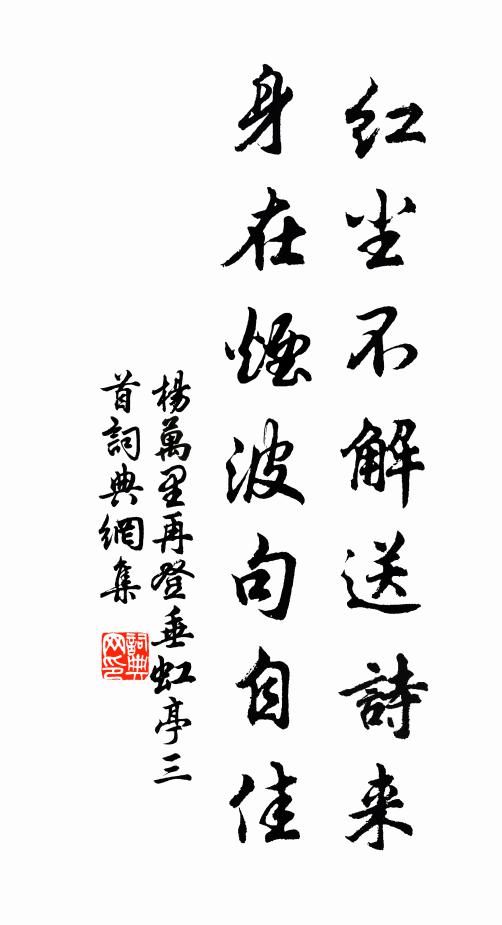 红尘不解送詩来
身在煙波句自佳
楊萬里再登垂虹亭三
首詞典網集
詞典
网印